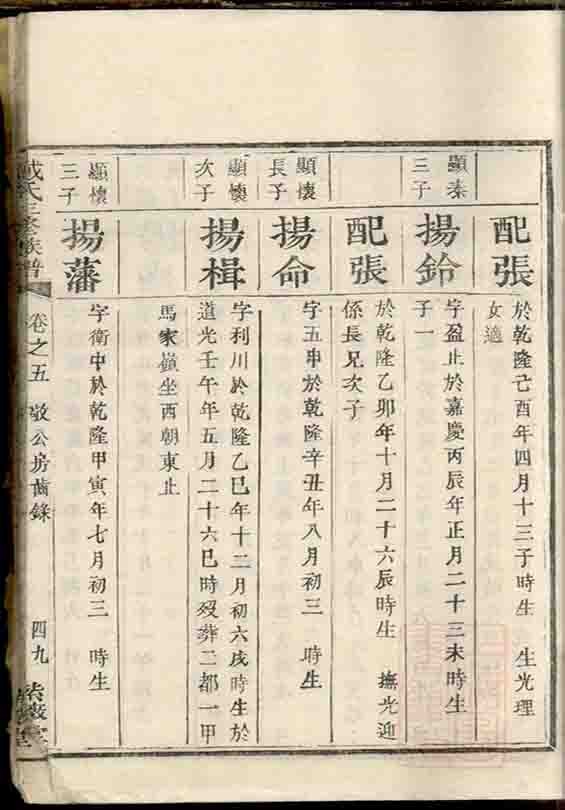 配張
於乾隆己酉年四月十三子時生 生光理
女適
顯秦
三子
揚鈴
字盈止於嘉慶丙辰年正月二十三未時生
子一
配張
於乾隆乙卯年十月二十六辰時生 撫光迎
係長兄次子
顯懷
長子
揚命
字五申於乾隆辛丑年八月初三 時生
顯懷
次子
揚楫
字利川於乾隆乙巳年十二月初六戌時生於
道光壬午年五月二十六巳時歿葬二都一甲
馬家嶺坐西朝東止
顯懷
三子
揚藩
字衛中於乾隆甲寅年七月初三 時生
戴氏三修族譜
卷之五 敬公房齒錄
四九
紫薇堂